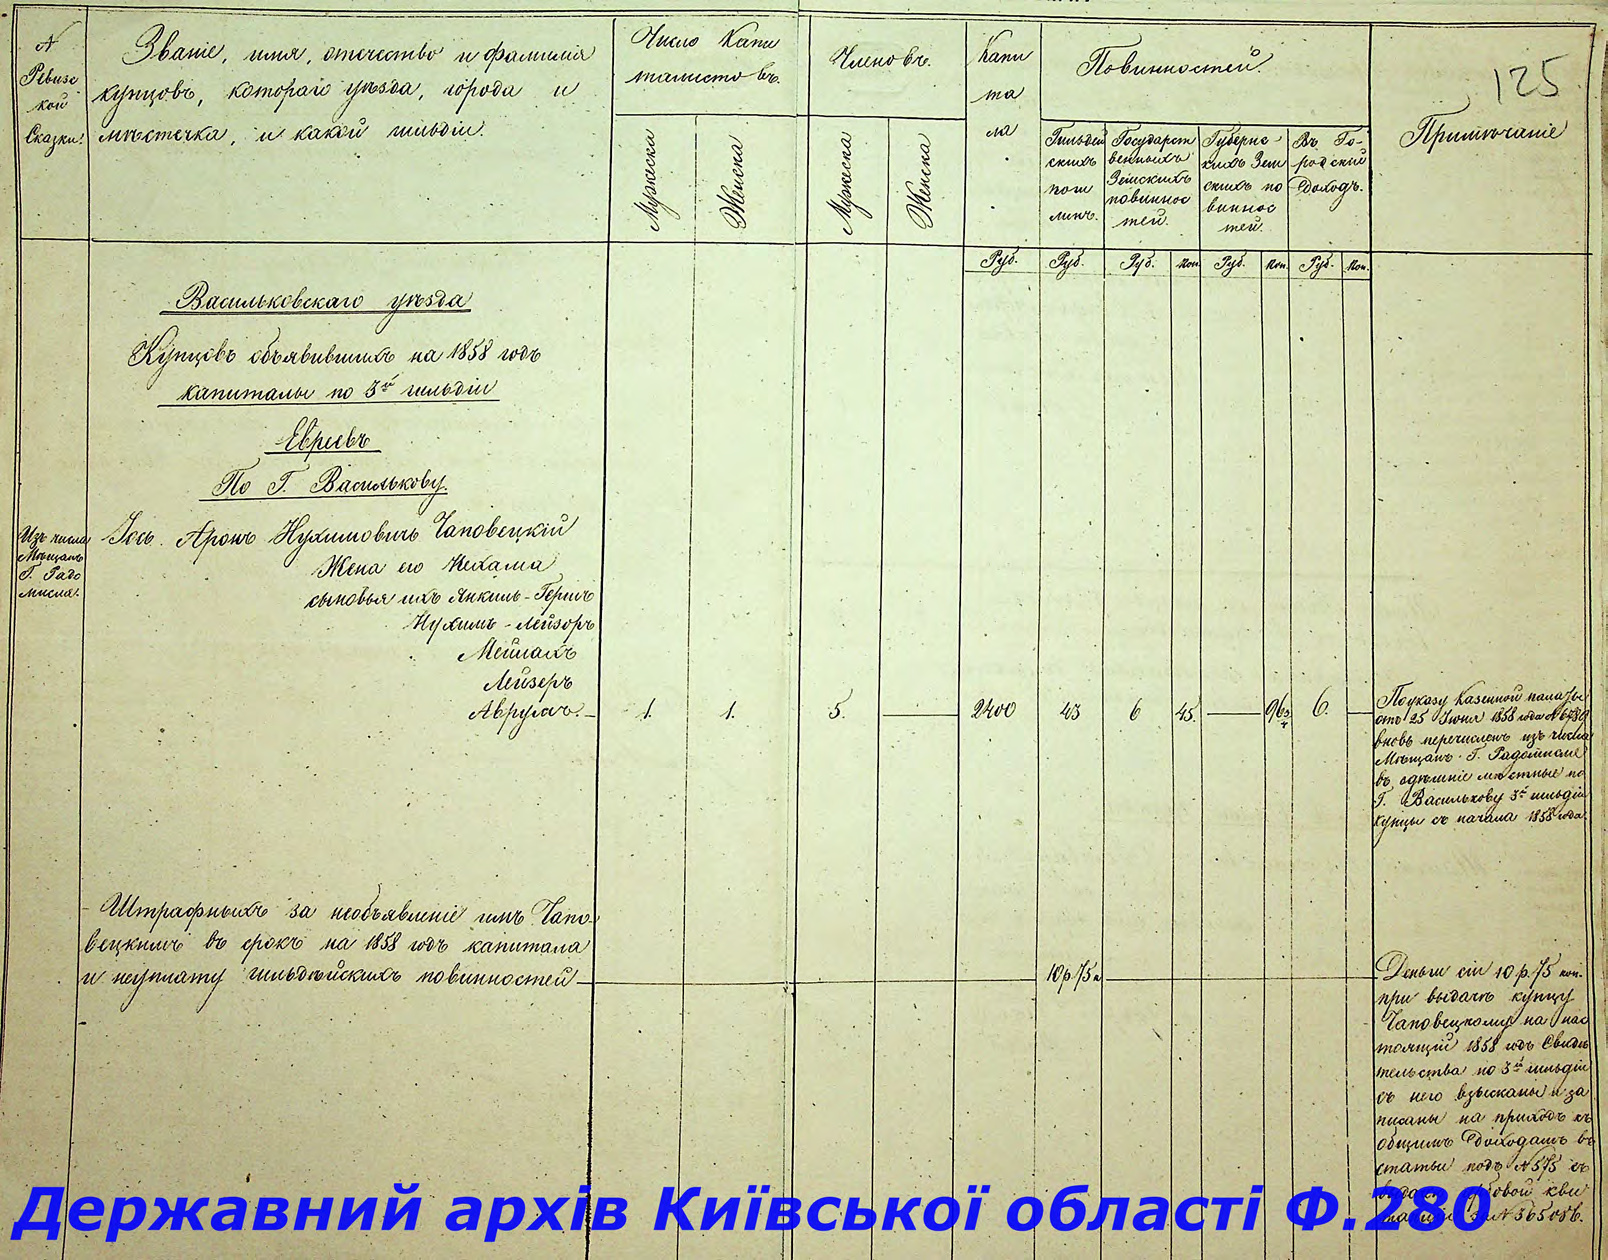 №
Ревизс
кой
Сказки.
Званіе, имя, отечество и фамилія
купцовъ, котораго уѣзда, города и
мѣстечка, и какой гильдіи.
Число Капи
талистовъ.
Мужеска
Женска
Членовъ.
Мужеска
Женска
Капи
та
ла
Повинностей.
Гильдей
скихъ
пош
линъ.
Государст
венныхъ
Земскихъ
повиннос
тей.
Губернс
кихъ Зем
скихъ по
виннос
тей.
Въ Го-
родской
Доходъ.
125
Примѣчаніе
Руб.
Руб.
Руб.
Коп.
Руб.
Коп.
Руб.
Коп.
Васильковскаго уѣзда
Купцовъ объявившихъ на 1858 годъ
капиталы по 3й гильдіи
Евреевъ
По Г. Василькову.
Изъ числа
Мѣщанъ
Г. Радо
мысля.
Іось Аронъ Нухимовичъ Чаповецкій
Жена его Нехама
сыновья ихъ Янкель-Гершъ
Нухимъ-Лейзоръ
Мейлахъ
Лейзеръ
Аврумъ.
1.
1.
5.
2400
43
6
45.
96¾
6.
По указу Казенной палаты
отъ 25 Іюня 1858 года №
вновь перечисленъ изъ числа
Мѣщанъ Г. Радомысля
въ мѣстные по
Г. Василькову 3й гильдіи
купцы съ начала 1858 года.
Штрафныхъ за необъявленіе имъ Чапо-
вецкимъ въ срокъ на 1858 годъ капитала
и неуплату гильдейскихъ повинностей
10 р. 75 к
Деньги сіи 10 р. 75 коп.
при выдачѣ купцу
Чаповецкому на нас
тоящій 1858 годъ Свидѣ
тельства по 3й гильдіи
съ него взысканы и за
писаны на приходъ къ
общимъ доходамъ въ
статьи подъ № 575 съ
Державний архів Київської області Ф.280